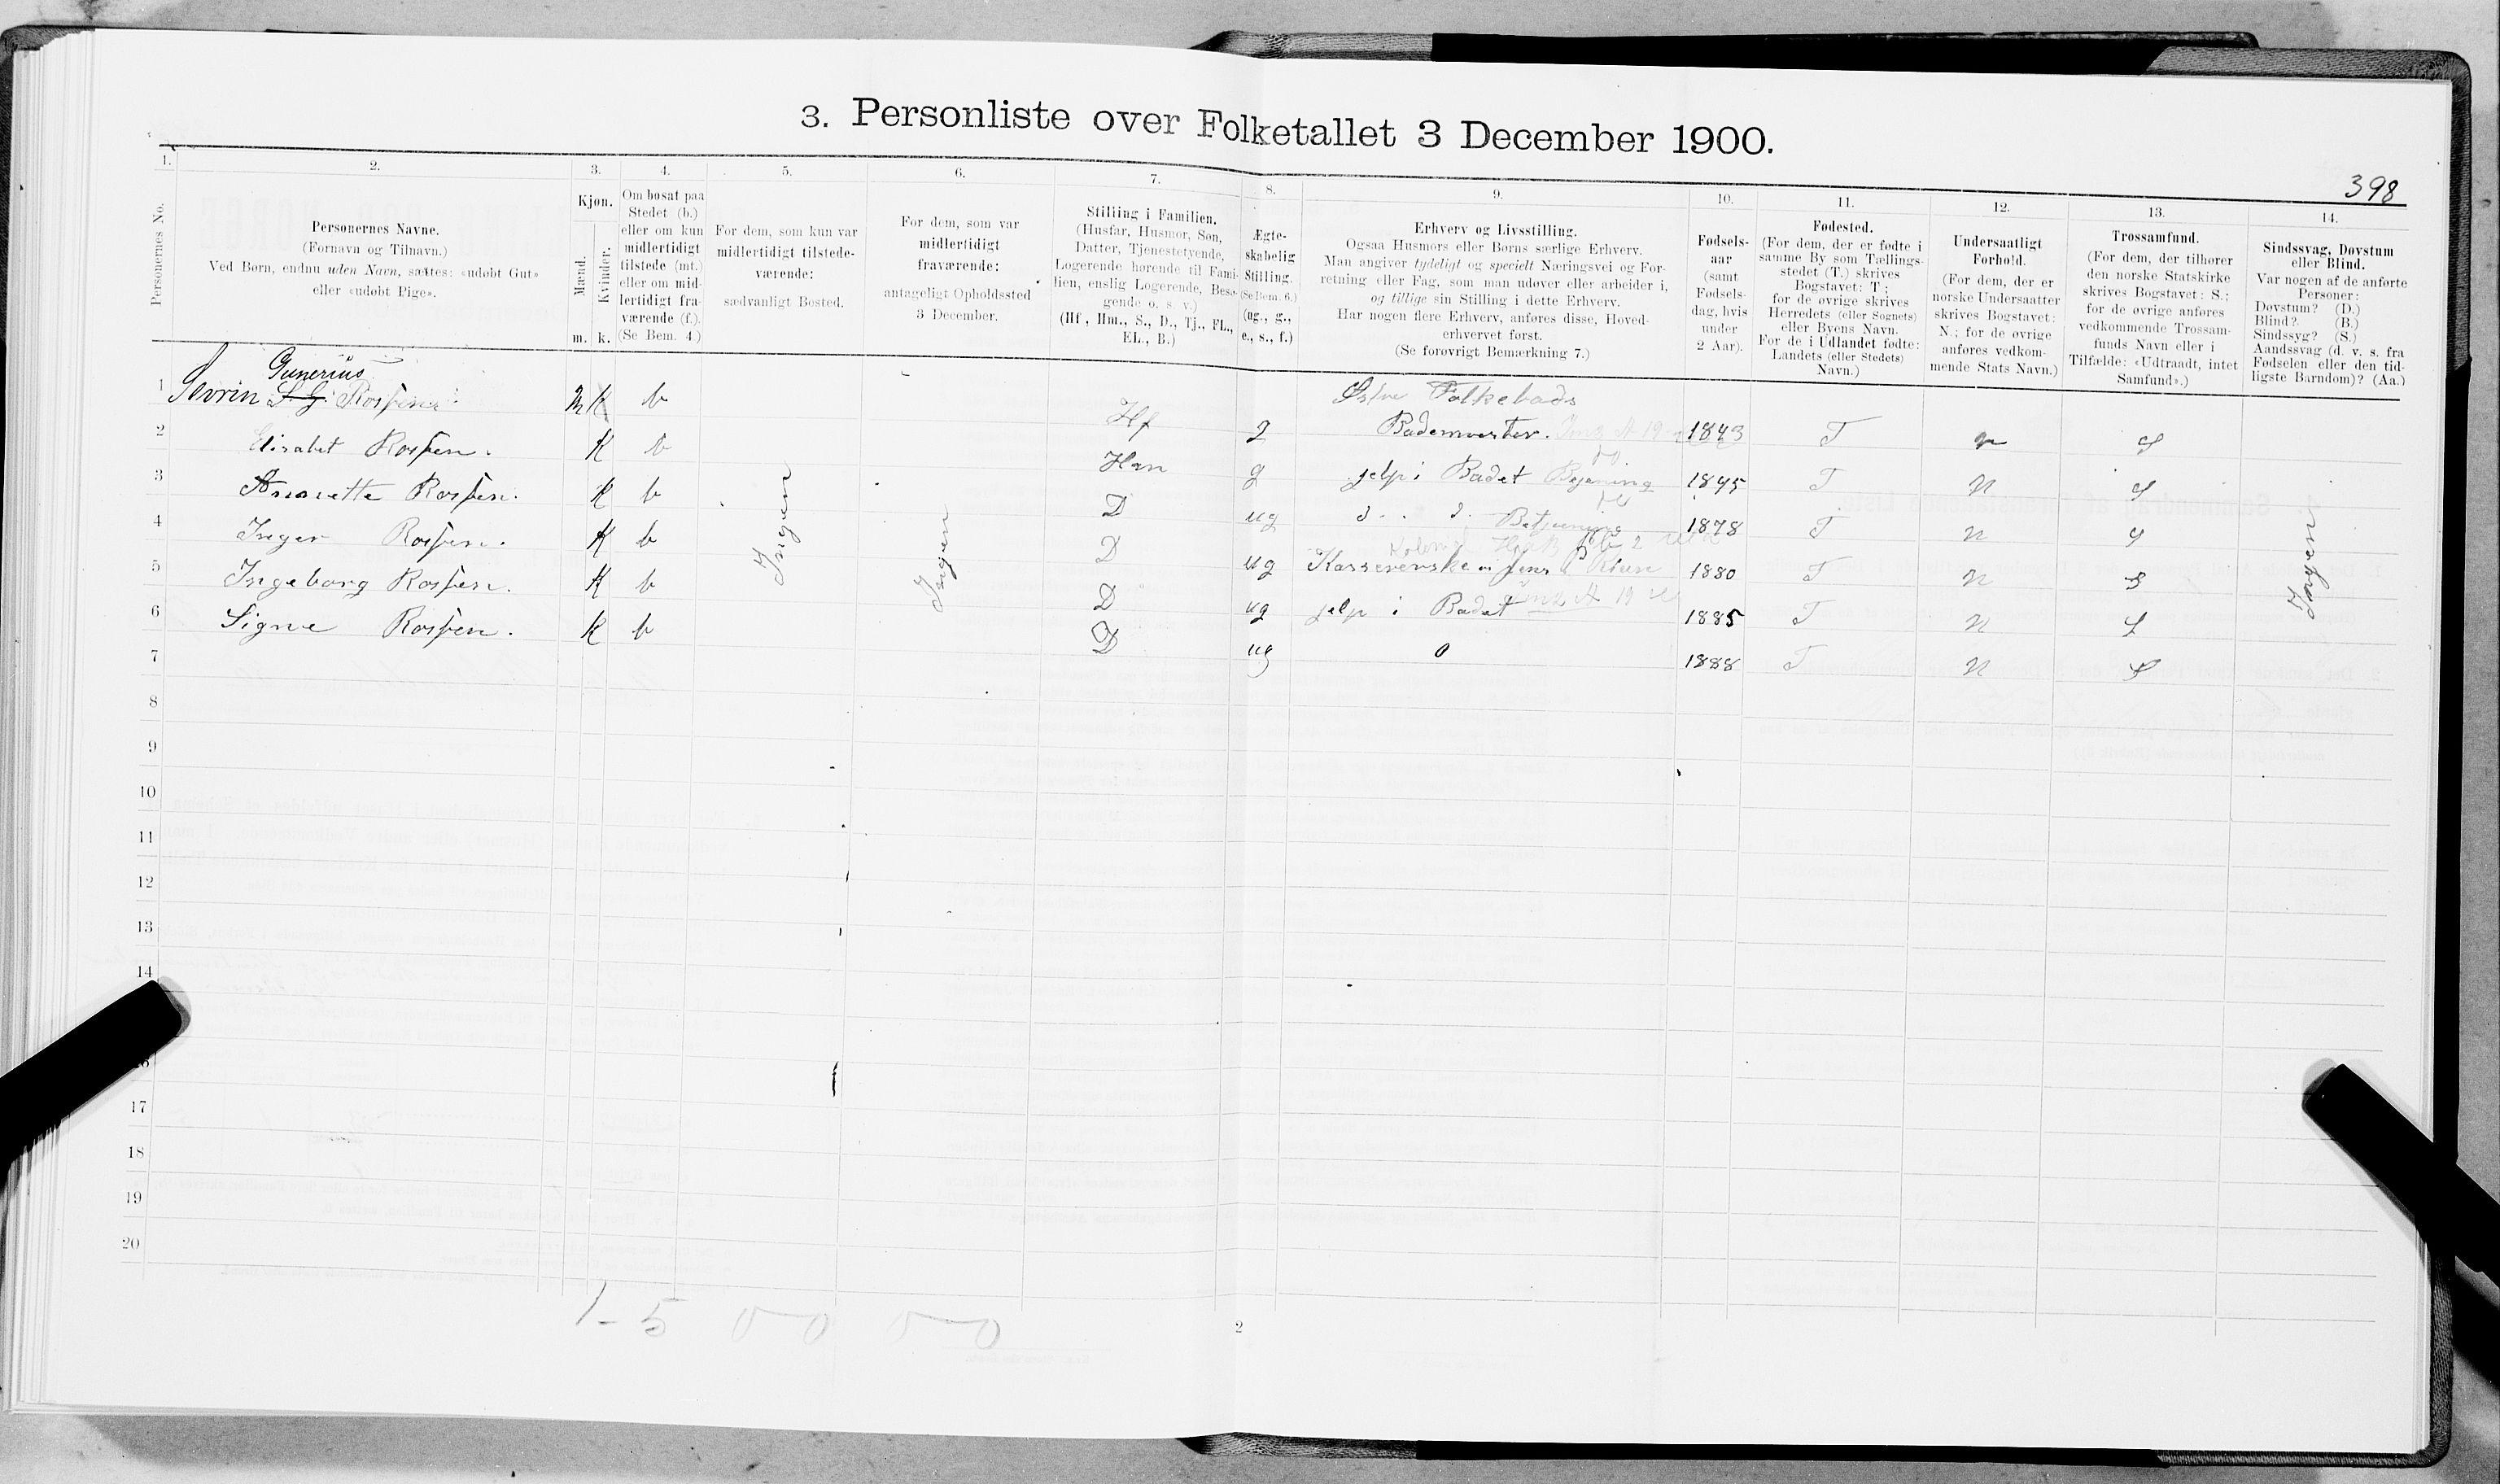 3. Personliste over Folketallet 3 December 1900.
398
1. 2. 3. 4. 5. 6. 7. 8. 9. 10. 11. 12. 13. 14.
Personernes No.
Personernes Navne.
(Fornavn og Tilnavn.)
Ved Børn, endnu uden Navn, sættes: «udøbt Gut»
eller «udøbt Pige».
Kjøn.
Mænd.
Kvinder.
m. k.
Om bosat paa
Stedet (b.)
eller om kun
midlertidigt
tilstede (mt.)
eller om mid-
lertidigt fra-
værende (f.).
(Se Bem. 4.)
For dem, som kun var
midlertidigt tilstede-
værende:
sædvanligt Bosted.
For dem, som var
midlertidigt
fraværende:
antageligt Opholdssted
3 December.
Stilling i Familien.
(Husfar, Husmor, Søn,
Datter, Tjenestetyende,
Logerende hørende til Fami-
lien, enslig Logerende, Besø-
gende o. s. v.)
(Hf., Hm., S., D., Tj., FL.,
EL., B.)
Ægte-
skabelig
Stilling.
(Se Bem. 6.)
(ug., g.,
e., s., f.)
Erhverv og Livsstilling.
Ogsaa Husmors eller Børns særlige Erhverv.
Man angiver tydeligt og specielt Næringsvei og For-
retning eller Fag, som man udøver eller arbeider i,
og tillige sin Stilling i dette Erhverv.
Har nogen flere Erhverv, anføres disse, Hoved-
erhvervet først.
(Se forøvrigt Bemærkning 7.)
Fødsels-
aar
(samt
Fødsels-
dag, hvis
under
2 Aar).
Fødested.
(For dem, der er fødte i
samme By som Tællings-
stedet (T.) skrives
Bogstavet: T.;
for de øvrige skrives
Herredets (eller Sognets)
eller Byens Navn.
For de i Udlandet fødte:
Landets (eller Stedets)
Navn.)
Undersaatligt
Forhold.
(For dem, der er
norske Undersaatter
skrives Bogstavet:
N.; for de øvrige
anføres vedkom-
mende Stats Navn.)
Trossamfund.
(For dem, der tilhører
den norske Statskirke
skrives Bogstavet: S.;
for de øvrige anføres
vedkommende Trossam-
funds Navn eller i
Tilfælde: «Udtraadt, intet
Samfund».)
Sindssvag, Døvstum
eller Blind.
Var nogen af de anførte
Personer:
Døvstum? (D.)
Blind? (B.)
Sindssyg? (S.)
Aandssvag (d. v. s. fra
Fødselen eller den tid-
ligste Barndom)? (Aa.)
Gunerius
1 Sevrin S. G. Rossen m K b Hf g Østre Folkebads
Bademester. 1843 T n S
2 Elisabet Rossen. K b Hm g jelp i Badet 1845 T N S
3 Annette Rossen. K b D ug d. d. Betjening 1878 T N S
4 Inger Rossen. K b D ug Kasserenske 1880 T N S
5 Ingeborg Rossen. K b D ug jelp i Badet 1885 T N S
6 Signe Rossen. K b D ug 0 1888 T N S
Ingen
Ingen
Ingen
7
8
9
10
11
12
13
14
17
18
19
20
1-5 0 0 0 0
2